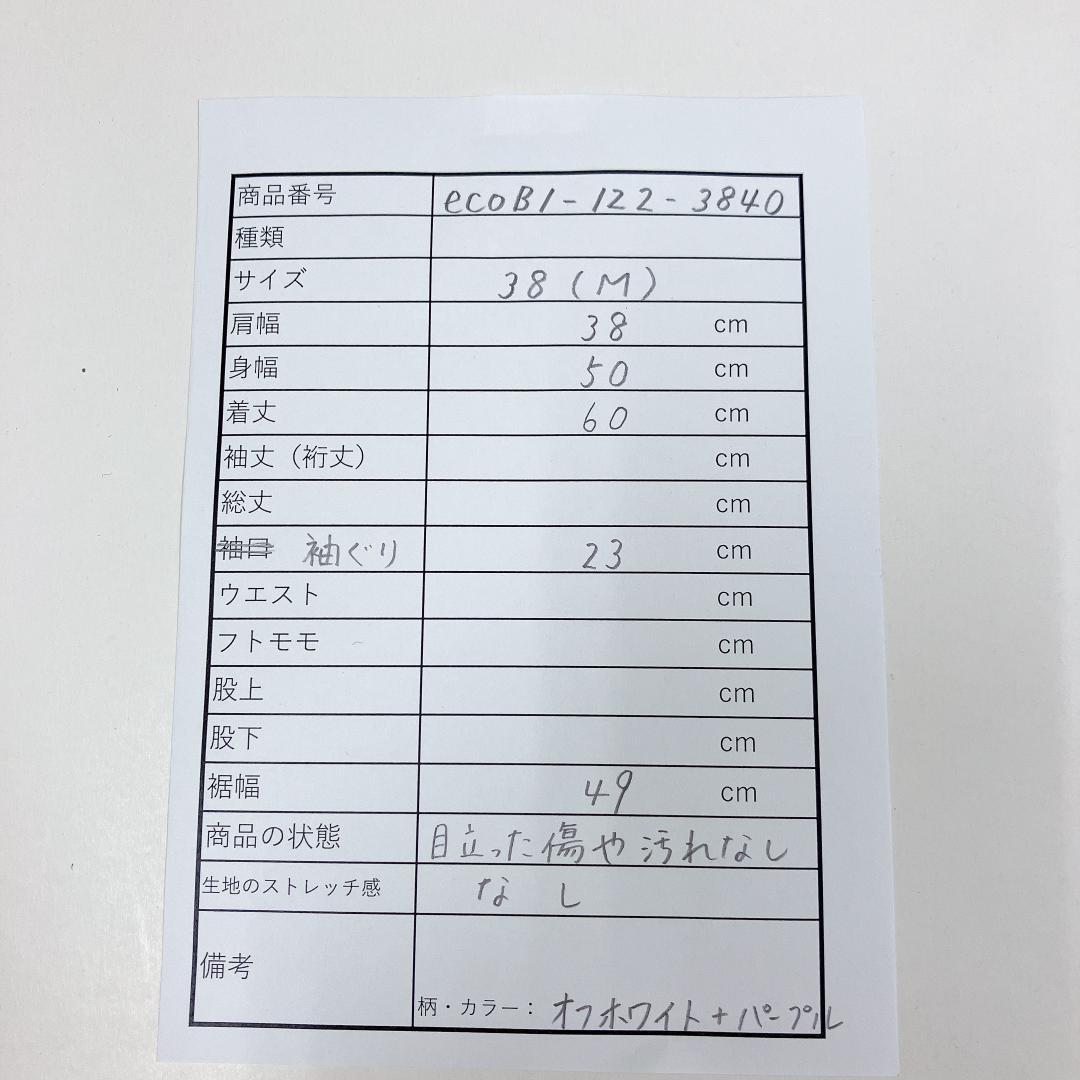 商品番号 ecoB1-122-3840
種類
サイズ 38(M)
肩幅 38 cm
身幅 50 cm
着丈 60 cm
袖丈（裄丈） cm
総丈 cm
袖口 袖ぐり 23 cm
ウエスト cm
フトモモ cm
股上 cm
股下 cm
裾幅 49 cm
商品の状態 目立った傷や汚れなし
生地のストレッチ感 なし
備考
柄・カラー： オフホワイト+パープル